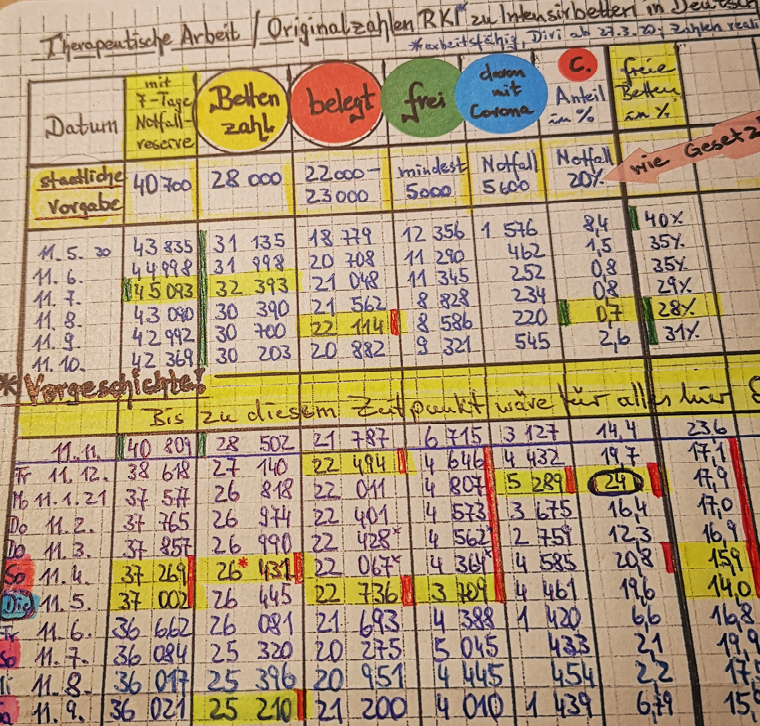 Therapeutische Arbeit / Originalzahlen RKI* zu Intensivbetten in Deutsch
*arbeitsfähig, Divi ab 27.3.20, Zahlen reali
Datum mit 7-Tage Notfall-reserve Betten zahl belegt frei davon mit Corona C. Anteil in % freie Betten in %
staatliche Vorgabe 40 700 28 000 22 000 - 23 000 mindest 5000 Notfall 5 600 Notfall 20% wie Gesetz
11.5. 20 43 835 31 135 18 779 12 356 1 576 8,4 40%
11.6. 44 998 31 998 20 708 11 290 462 1,5 35%
11.7. 45 093 32 393 21 048 11 345 252 0,8 35%
11.8. 43 090 30 390 21 562 8 828 234 0,8 29%
11.9. 42 992 30 700 22 114 8 586 220 0,7 28%
11.10. 42 369 30 203 20 882 9 321 545 2,6 31%
Vorgeschichte!
Bis zu diesem Zeitpunkt wäre für alles hier
11.11. 40 809 28 502 21 787 6 715 3 127 14,4 23,6
Fr 11.12. 38 618 27 140 22 494 4 646 4 432 19,7 17,1
Mo 11.1.21 37 517 26 818 22 011 4 807 5 289 24 17,9
Do 11.2. 37 765 26 974 22 401 4 573 3 675 16,4 17,0
Do 11.3. 37 857 26 990 22 428* 4 562* 2 759 12,3 16,9
So 11.4. 37 269 26* 431 22 067* 4 364* 4 585 20,8 15,9
Die 11.5. 37 002 26 445 22 736 3 709 4 461 19,6 14,0
11.6. 36 662 26 081 21 693 4 388 1 420 6,6 16,8
So 11.7. 36 084 25 320 20 275 5 045 433 2,1 19,9
11.8. 36 017 25 396 20 951 4 445 454 2,2 17,5
11.9. 36 021 25 210 21 200 4 010 1 439 6,79 15,